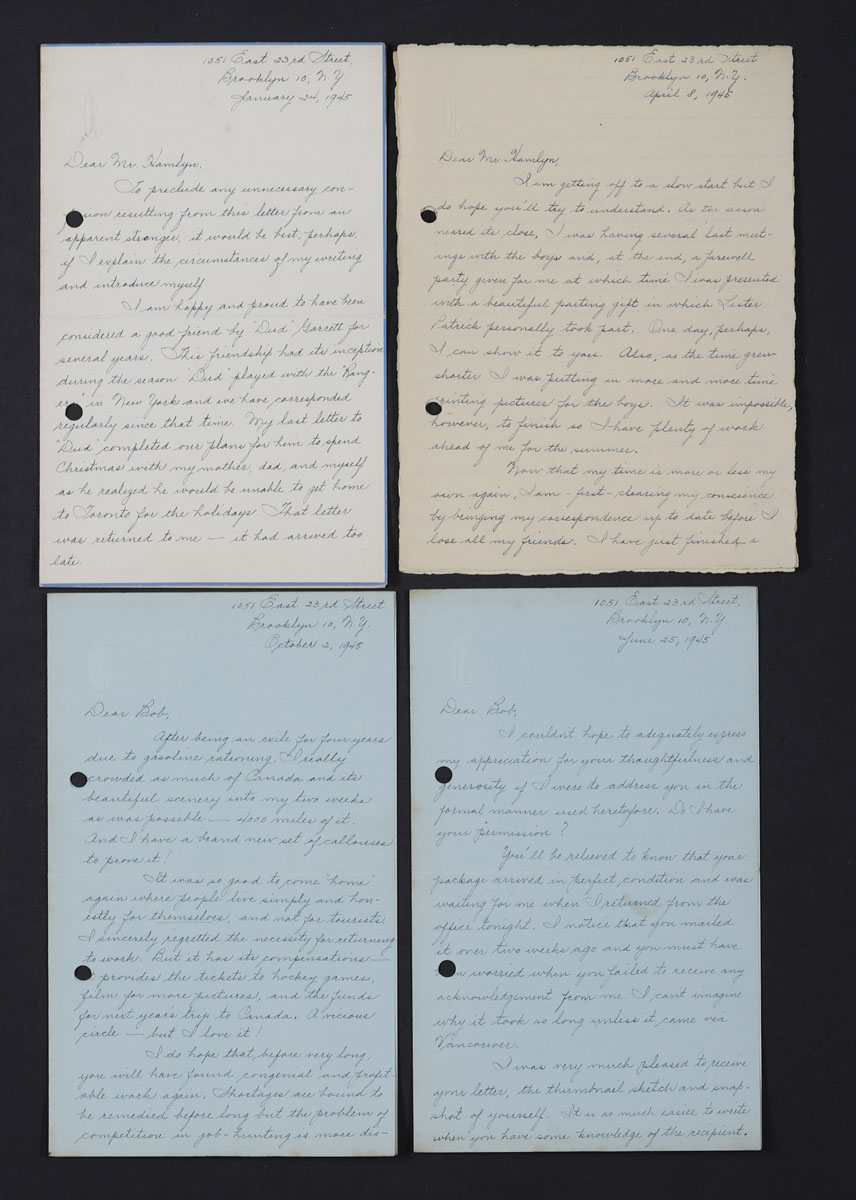 1051 East 23rd Street,
Brooklyn 10, N.Y.
January 24, 1945
Dear Mr. Hamlyn,
To preclude any unnecessary con-
sion resulting from this letter from an
apparent stranger, it would be best, perhaps,
if I explain the circumstances of my writing
and introduce myself.
I am happy and proud to have been
considered a good friend by "Dud" Garrett for
several years. This friendship had its inception
during the season "Dud" played with the "Rang-
ers" in New York and we have corresponded
regularly since that time. My last letter to
"Dud" completed our plans for him to spend
Christmas with my mother, dad, and myself
as he realized he would be unable to get home
to Toronto for the holidays. That letter
was returned to me — it had arrived too
late.
1051 East 23rd Street
Brooklyn 10, N.Y.
April 8, 1945
Dear Mr. Hamlyn,
I am getting off to a slow start but I
do hope you'll try to understand. As the season
neared its close, I was having several last meet-
ings with the boys and, at the end, a farewell
party given for me at which time I was presented
with a beautiful parting gift in which Lester
Patrick personally took part. One day, perhaps,
I can show it to you. Also, as the time grew
shorter I was putting in more and more time
printing pictures for the boys. It was impossible,
however, to finish so I have plenty of work
ahead of me for the summer.
Now that my time is more or less my
own again, I am - first - clearing my conscience
by bringing my correspondence up to date before I
lose all my friends. I have just finished a
1051 East 23rd Street
Brooklyn 10, N.Y.
October 2, 1945
Dear Bob,
After being an exile for four years
due to gasoline rationing, I really
crowded as much of Canada and its
beautiful scenery into my two weeks
as was possible — 4000 miles of it.
And I have a brand new set of callouses
to prove it!
It was so good to come "home"
again where people live simply and hon-
estly for themselves, and not for tourists.
I sincerely regretted the necessity for returning
to work. But it has its compensations —
it provides the tickets to hockey games,
film for more pictures, and the funds
for next years trip to Canada. A vicious
circle — but I love it!
I do hope that, before very long,
you will have found congenial and profit-
able work again. Shortages are bound to
be remedied before long but the problem of
competition in job-hunting is more dis-
1051 East 23rd Street,
Brooklyn 10, N.Y.
June 25, 1945
Dear Bob,
I couldn't hope to adequately express
my appreciation for your thoughtfulness and
generosity if I were to address you in the
formal manner used heretofore. Do I have
your permission?
You'll be relieved to know that your
package arrived in perfect condition and was
waiting for me when I returned from the
office tonight. I notice that you mailed
it over two weeks ago and you must have
worried when you failed to receive any
acknowledgement from me. I can't imagine
why it took so long unless it came via
Vancouver.
I was very much pleased to receive
your letter, the thumbnail sketch and snap-
shot of yourself. It is so much easier to write
when you have some knowledge of the recipient.